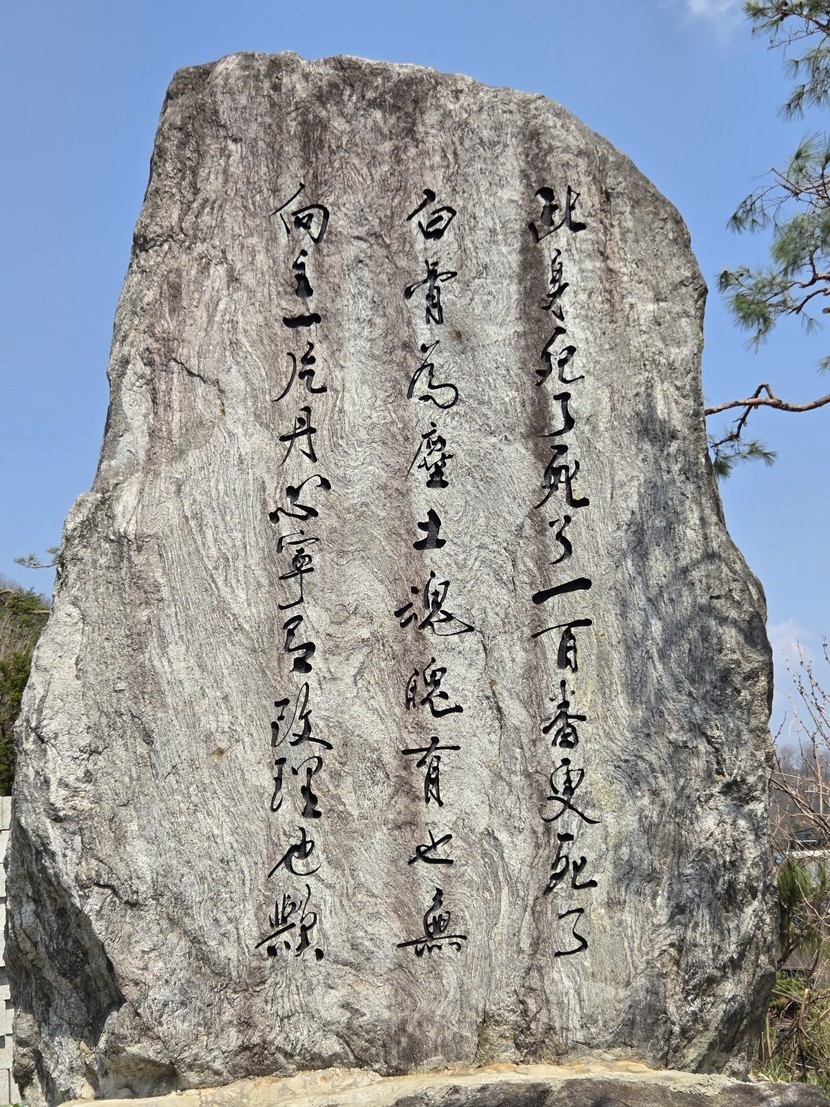 此身死了死了一百番更死了
白骨為塵土魂魄有也無
向主一片丹心寧有改理也歟